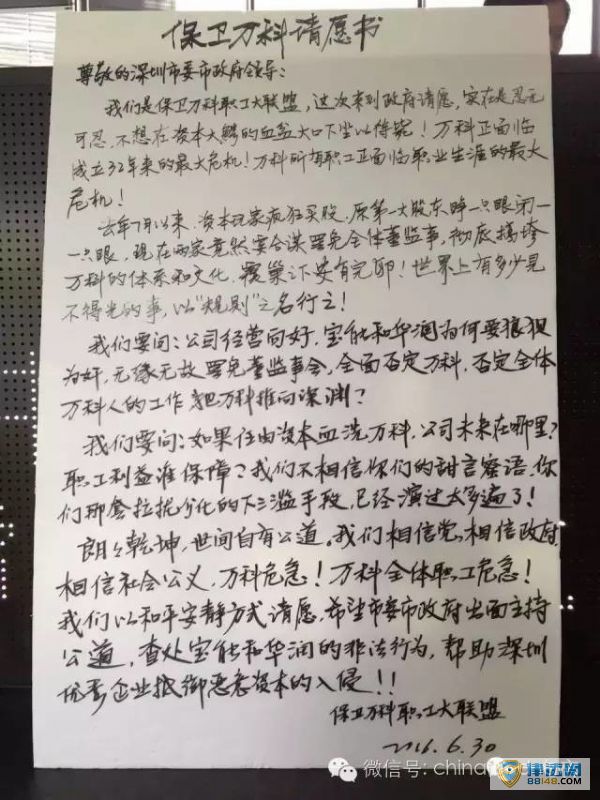 保卫万科请愿书
尊敬的深圳市委市政府领导：
我们是保卫万科职工大联盟，这次来到政府请愿，实在是忍无
可忍，不想在资本大鳄的血盆大口下坐以待毙！万科正面临
成立32年来的最大危机！万科所有职工正面临职业生涯的最大
危机！
去年7月以来，资本玩家疯狂买股，原第一大股东睁一只眼闭一
一只眼，现在两家竟然要合谋罢免全体董监事，彻底搞垮
万科的体系和文化，覆巢之下安有完卵！世界上有多少见
不得光的事，以“规则”之名行之！
我们要问：公司经营向好，宝能和华润为何要狼狈
为奸，无缘无故罢免董监事会，全面否定万科，否定全体
万科人的工作，把万科推向深渊？
我们要问：如果任由资本血洗万科，公司未来在哪里？
职工利益谁保障？我们不相信你们的甜言蜜语，你
们那套拉拢分化的下三滥手段，已经演过太多遍了！
朗朗乾坤，世间自有公道。我们相信党，相信政府，
相信社会公义，万科危急！万科全体职工危急！
我们以和平安静方式请愿，希望市委市政府出面主持
公道，查处宝能和华润的非法行为，帮助深圳
优秀企业抵御恶意资本的入侵！！
保卫万科职工大联盟
2016.6.30
微信号: china
律法网
88148.com